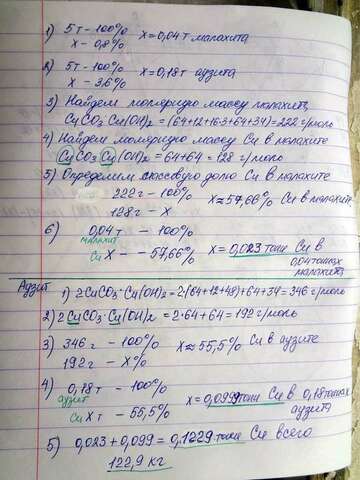 1) 5т - 100%
х - 0,8%   х=0,04т малахита
2) 5т - 100%
х - 3,6%   х=0,18т аузита
3) Найдем молярную массу малахита,
CuCO3·Cu(OH)2 = (64+12+16·3+64+34)=222 г/моль
4) Найдем молярную массу Cu в малахите
CuCO3·Cu(OH)2 = 64+64=128 г/моль
5) Определим массовую долю Cu в малахите
222г - 100%
128г - х   х≈57,66% Cu в малахите
6) 0,04т - 100%
малахит
Cu х - - 57,66%   х = 0,023 тонн Cu в
0,04 тоннах
малахита
Аузит
1) 2CuCO3·Cu(OH)2=2·(64+12+48)+64+34=346 г/моль
2) 2CuCO3·Cu(OH)2 = 2·64+64=192 г/моль
3) 346г - 100%   х≈55,5% Cu в аузите
192г - х%
4) 0,18т - 100%
аузит   х=0,0999 тонн Cu в 0,18 тоннах
Cu хт - 55,5%   аузита
5) 0,023+0,099=0,1229 тонн Cu всего
122,9 кг